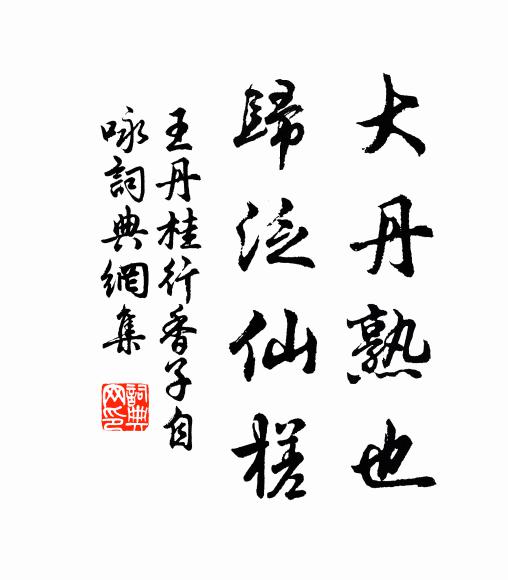 大丹熟也
歸泛仙槎
王丹桂行香子自
咏詞典網集
詞典
网印